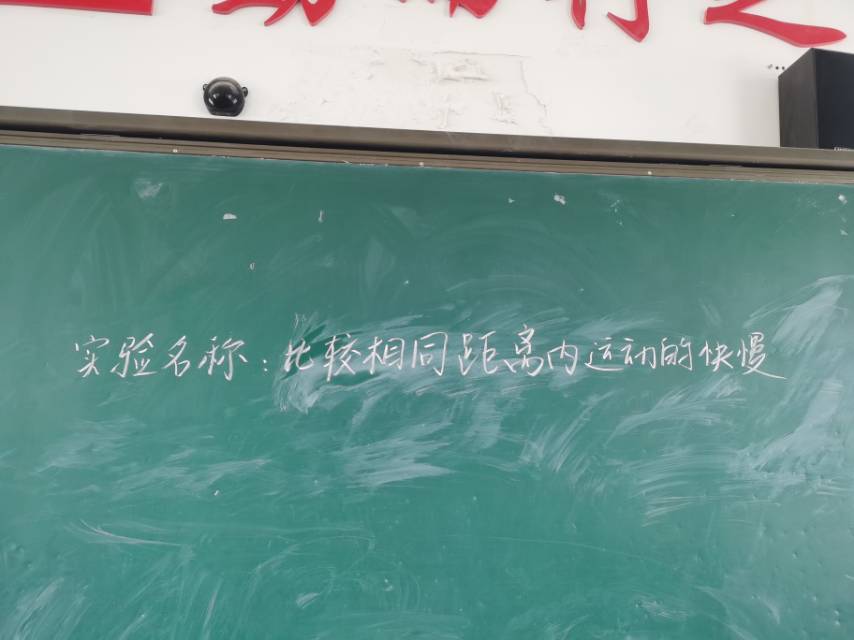 实验名称：比较相同距离内运动的快慢